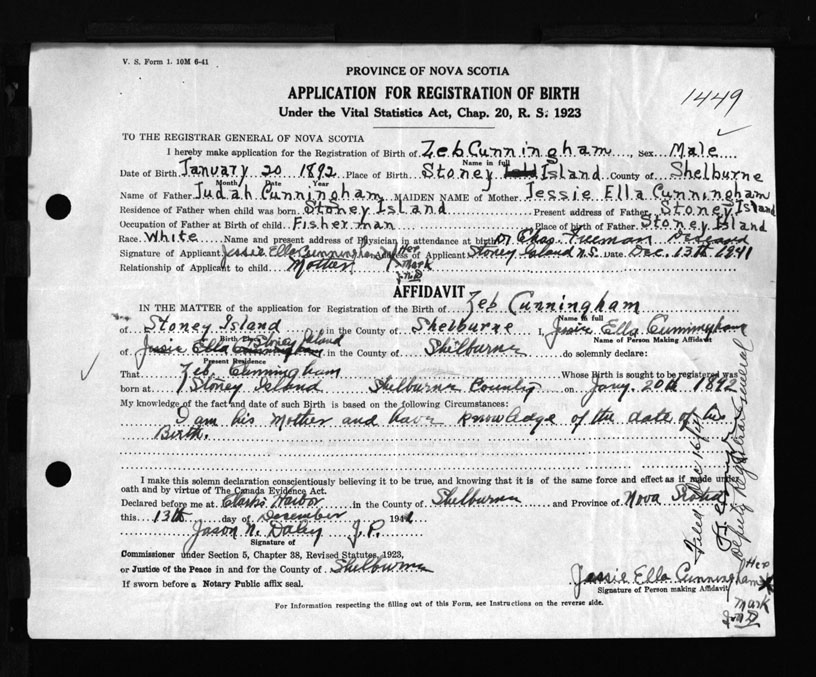 V. S. Form 1. 10M 6-41
PROVINCE OF NOVA SCOTIA
APPLICATION FOR REGISTRATION OF BIRTH
1449
Under the Vital Statistics Act, Chap. 20, R. S. 1923
TO THE REGISTRAR GENERAL OF NOVA SCOTIA
I hereby make application for the Registration of Birth of Zeb Cunningham, Sex Male
Name in full
Date of Birth January 20 1892 Place of Birth Stoney Island County of Shelburne
Month Date Year
Name of Father Judah Cunningham MAIDEN NAME of Mother Jessie Ella Cunningham
Residence of Father when child was born Stoney Island Present address of Father Stoney Island
Occupation of Father at Birth of child Fisherman Place of birth of Father Stoney Island
Race White Name and present address of Physician in attendance at birth Dr Chas. Freeman Deseased
Signature of Applicant Jessie Ella Cunningham Her Mark Address of Applicant Stoney Island N.S. Date Dec. 13th 1941
Relationship of Applicant to child Mother
AFFIDAVIT
IN THE MATTER of the application for Registration of the Birth of Zeb Cunningham
Name in full
of Stoney Island in the County of Shelburne I, Jessie Ella Cunningham
Birth Place
Name of Person Making Affidavit
of Jessie Ella Cunningham Stoney Island in the County of Shelburne do solemnly declare:
Present Residence
That Zeb Cunningham Whose Birth is sought to be registered was
born at Stoney Island Shelburne County on Jany. 20th 1892
My knowledge of the fact and date of such Birth is based on the following Circumstances:
I am his Mother and have knowledge of the date of his
Birth.
I make this solemn declaration conscientiously believing it to be true, and knowing that it is of the same force and effect as if made under
oath and by virtue of The Canada Evidence Act.
Declared before me at Clarks Harbor in the County of Shelburne and Province of Nova Scotia
this 13th day of Desember 1941
Jason N. Daley J.P.
Signature of
Commissioner under Section 5, Chapter 38, Revised Statutes, 1923,
or Justice of the Peace in and for the County of Shelburne
If sworn before a Notary Public affix seal.
Jessie Ella Cunningham Her
Signature of Person making Affidavit
Mark
For Information respecting the filling out of this Form, see Instructions on the reverse side.
Filed Dec 16/41
Deputy Registrar General